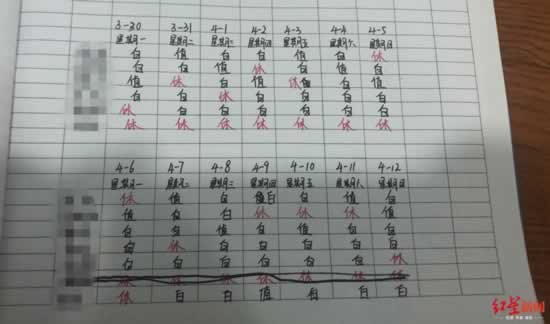 3-30 3-31 4-1 4-2 4-3 4-4 4-5
星期一 星期二 星期三 星期四 星期五 星期六 星期日
白 值 白 白 值 白 休
白 白 值 休 白 值 白
值 休 白 值 休白 白 值
白 白 休 白 白 白 白
休 白 白 白 白 白 白
休 休 休 休 休 休 休
4-6 4-7 4-8 4-9 4-10 4-11 4-12
星期一 星期二 星期三 星期四 星期五 星期六 星期日
休 值 白 值白 白 值 白
值 白 白 休 休 休 值
白 白 值 白 值 白 白
白 休 白 白 白 白 白
白 白 白 白 白 白 休
休 休 休 休 休 休 休
休 白 白 值 白 白 白
红星新闻